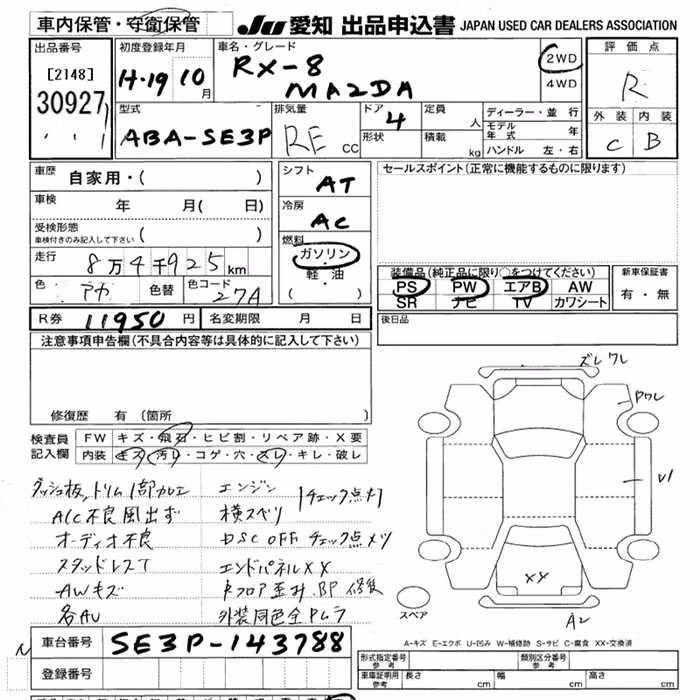 車内保管・守衛保管
JU 愛知 出品申込書 JAPAN USED CAR DEALERS ASSOCIATION
出品番号
[2148]
30927
初度登録年月
H・19 10月
車名・グレード
RX-8
MAZDA
2WD
4WD
評価点
R
外装 内装
C B
型式
ABA-SE3P
排気量
RE cc
ドア
4
形状
定員
人
積載
kg
ディーラー・並行
モデル年式 年
ハンドル 左・右
車歴
自家用・( )
車検
年 月( 日)
受検形態
車検付きのみ記入して下さい ( )
走行
8万4千925km
色
アカ
色替
色コード
27A
シフト
AT
冷房
AC
燃料
ガソリン
軽・油
( )
セールスポイント(正常に機能するものに限ります)
装備品(純正品に限り○をつけてください)
PS PW エアB AW
SR ナビ TV カワシート
新車保証書
有・無
R券 11950 円 名変期限 月 日
後日品
注意事項申告欄(不具合内容等は具体的に記入して下さい)
修復歴 有(箇所
検査員
記入欄
FW キズ・飛石・ヒビ割・リペア跡・X要
内装 キズ・汚レ・コゲ・穴・スレ・キレ・破レ
ズレ ワレ
Pワレ
U1
XX
A2
スペア
ダッシュ板、トリム1部カレエ
エンジン チェック点灯
A/C不良 風出ず
横スベリ
オーディオ不良
DSC OFF チェック点メツ
スタッドレス7
エンドパネルXX
AWキズ
Rフロア歪み、BP修後
各AU
外装同色全Pムラ
車台番号 SE3P-143788
登録番号
A-キズ E-エクボ U-凹み W-補修跡 S-サビ C-腐食 XX-交換済
形式指定番号 参考
類別区分番号 参考
車庫証明用 参考 長さ cm 幅 cm 高さ cm